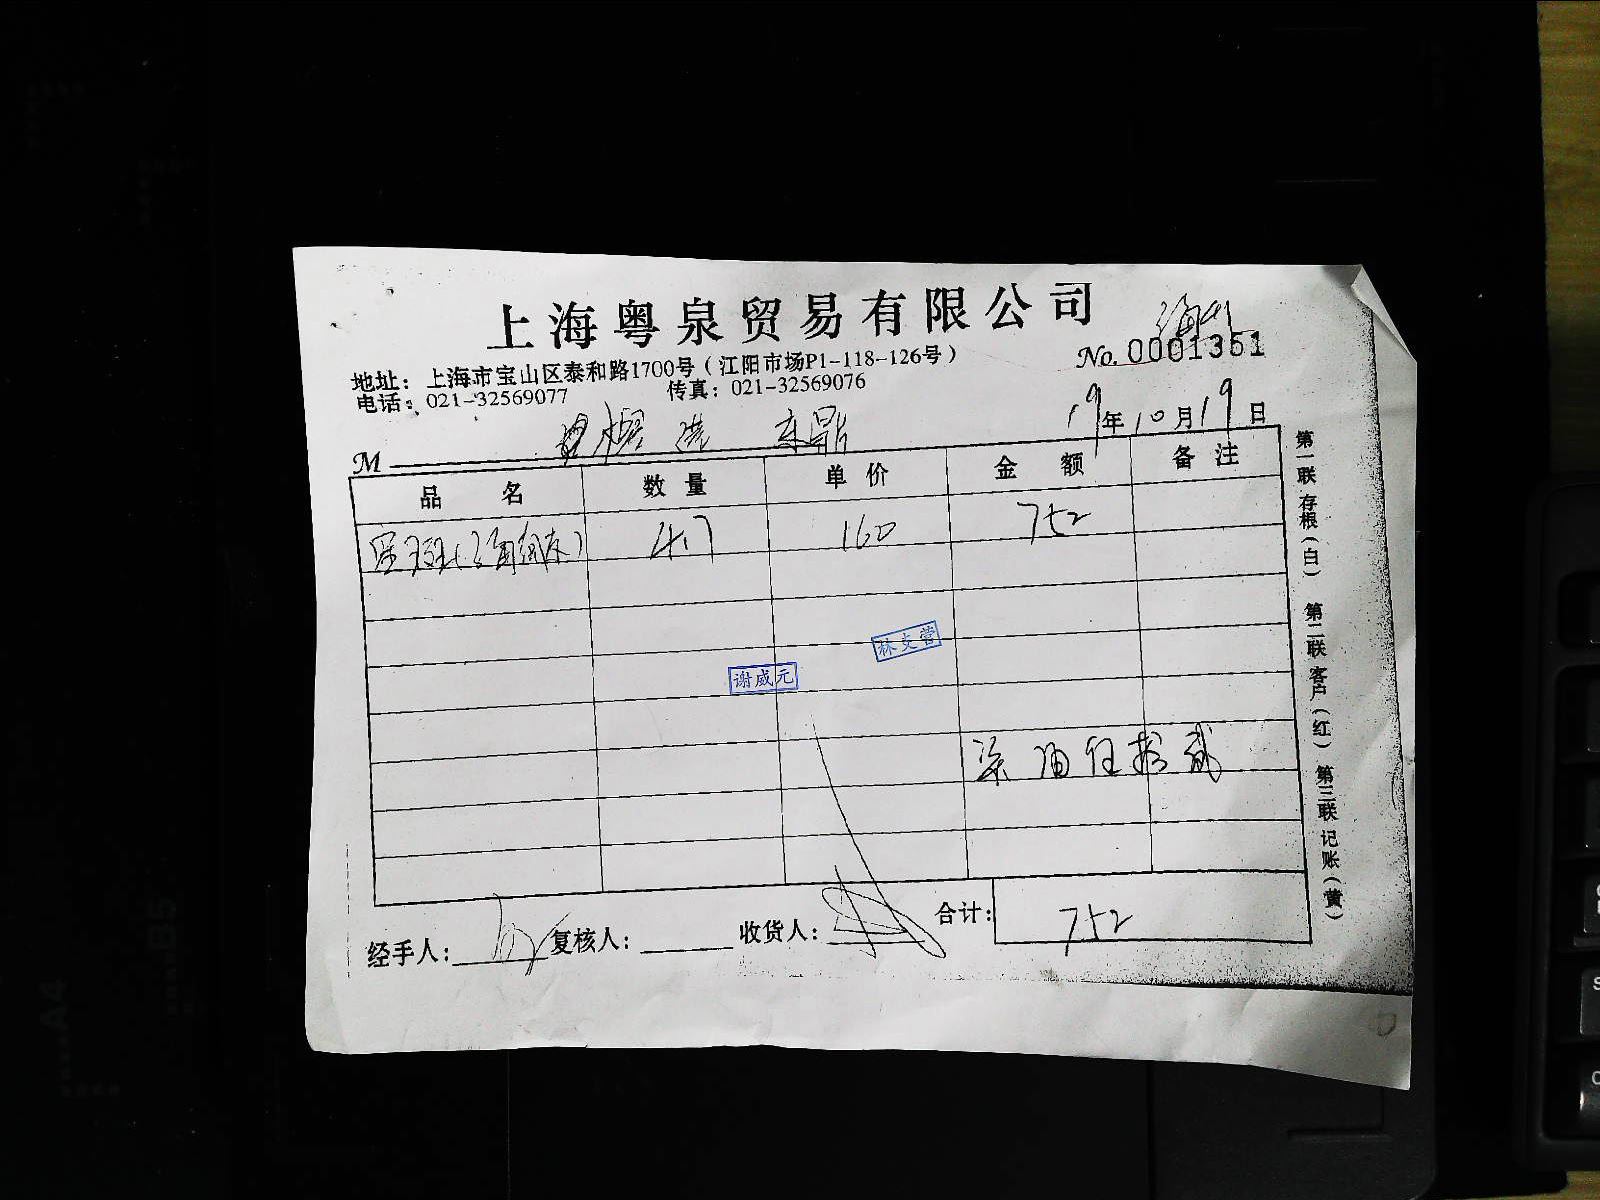 上海粤泉贸易有限公司
No. 0001351
地址：上海市宝山区泰和路1700号（江阳市场P1-118-126号）
电话：021-32569077 传真：021-32569076
19年10月19日
M
品名 数量 单价 金额 备注
4.7 160 752
林支营
谢威元
柒佰伍拾贰
经手人： 复核人： 收货人： 合计： 752
第一联 存根（白） 第二联 客户（红） 第三联 记账（黄）
B5
A4